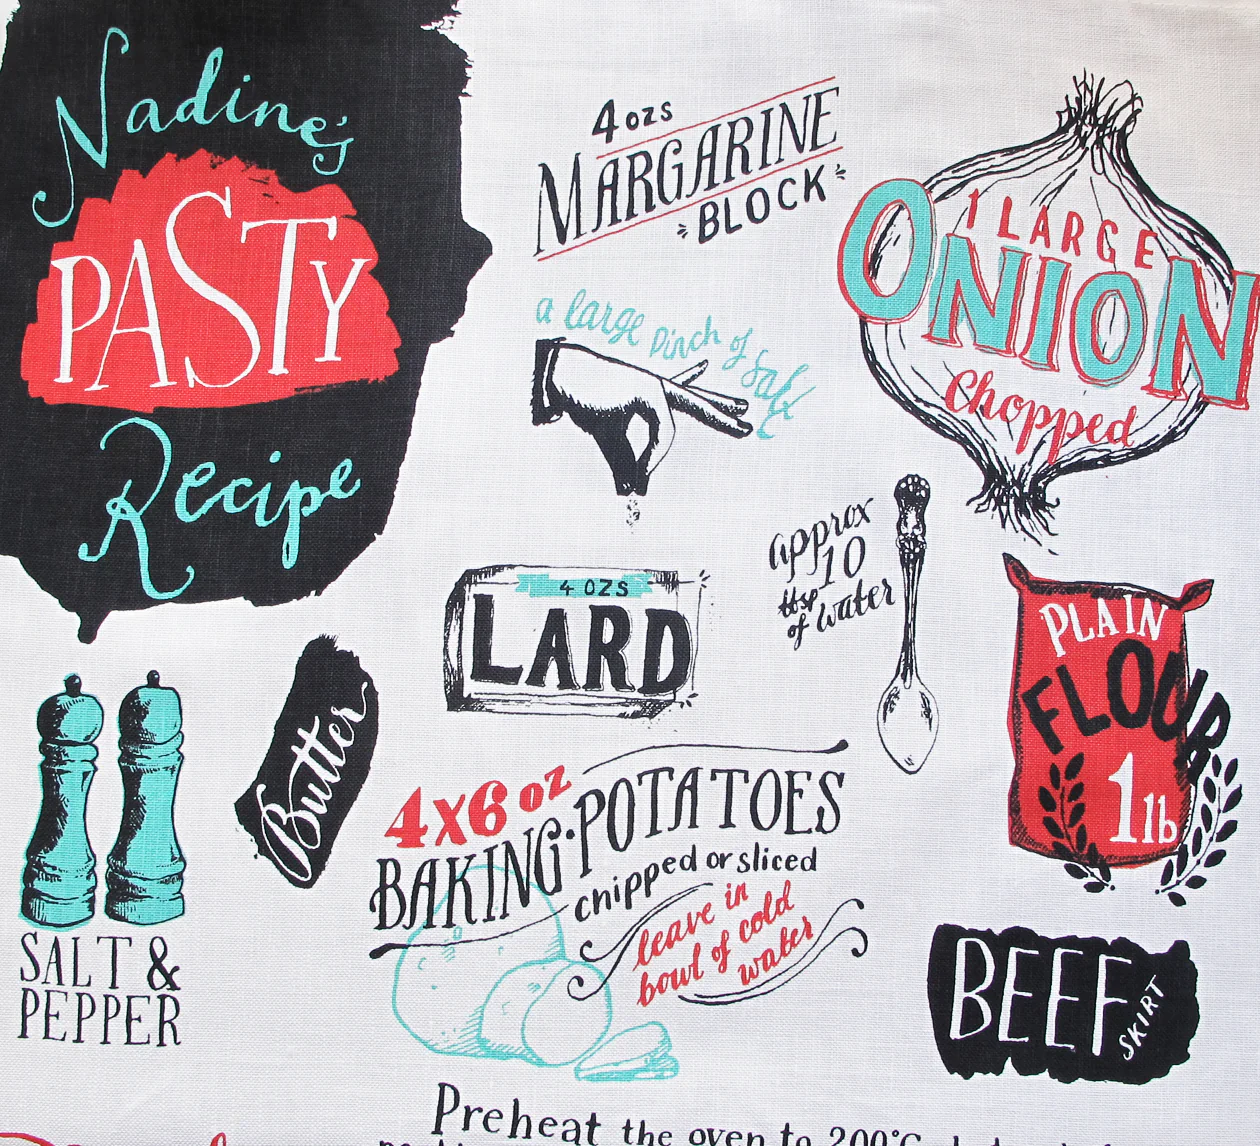 Nadine's
PASTY
Recipe
4 ozs
MARGARINE
BLOCK
a large pinch of salt
1 LARGE
ONION
Chopped
approx
10
tbsp
of water
4 OZS
LARD
PLAIN
FLOUR
1lb
SALT &
PEPPER
Butter
4x6 oz
BAKING·POTATOES
chipped or sliced
leave in
bowl of cold
water
BEEF
SKIRT
Preheat the oven to 200°C